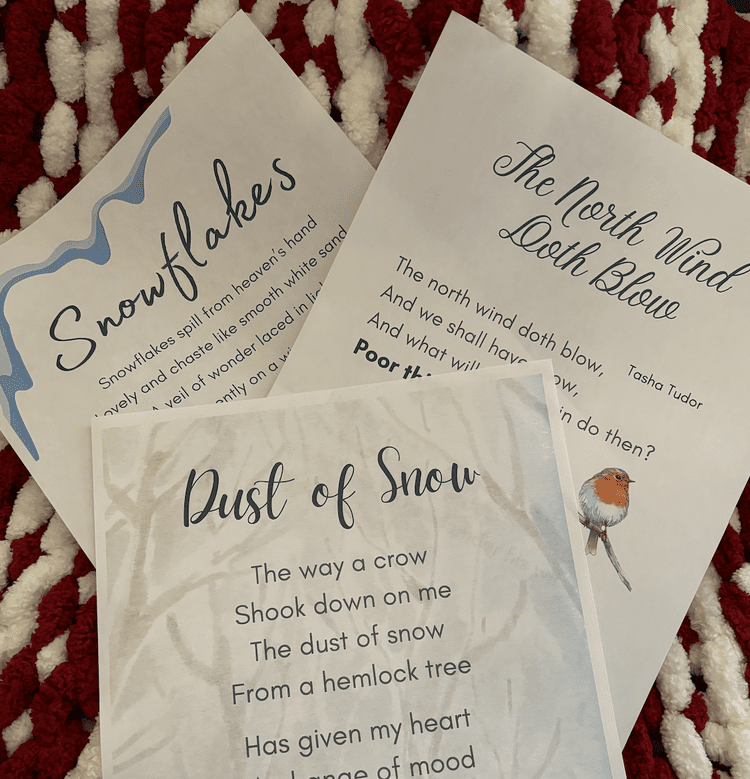 Snowflakes
Snowflakes spill from heaven's hand
Lovely and chaste like smooth white sand
A veil of wonder laced in
ently on a
The North Wind
Doth Blow
Tasha Tudor
The north wind doth blow,
And we shall have ow,
And what will in do then?
Poor
Dust of Snow
The way a crow
Shook down on me
The dust of snow
From a hemlock tree
Has given my heart
change of mood